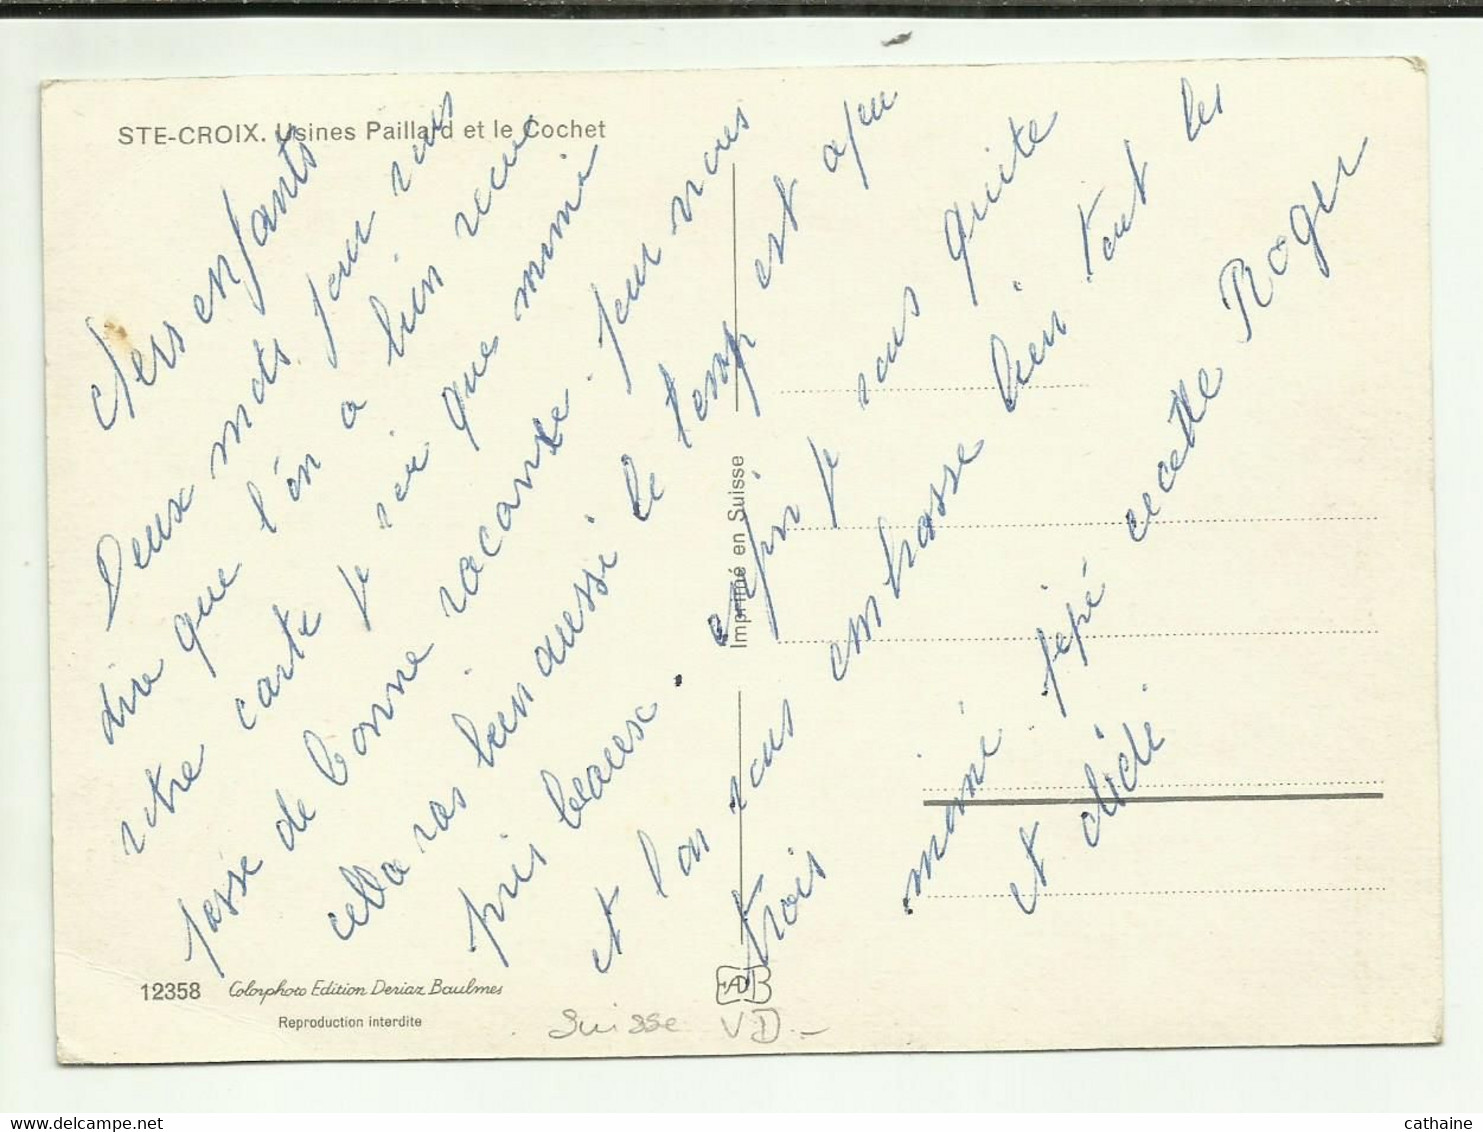 STE-CROIX. Usines Paillard et le Cochet
chers enfants
Deux mots pour vous
dire que l'on a bien recue
votre carte je voi que mimi
passe de bonne vacanxe. pour nous
cella vas bien aussi le temp est a peu
pris beaux. enfin je vous quite
et l'on vous embrasse bien tout les
trois
mimi pépé cecette Roger
et didi
Imprimé en Suisse
12358 Colorphoto Edition Deriaz Baulmes
Reproduction interdite
EDB
Suisse VD.-
cathaine